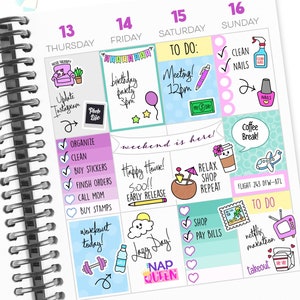 13
THURSDAY
14
FRIDAY
15
SATURDAY
16
SUNDAY
Update
Instagram
birthday
party
3pm
TO DO:
Meeting!
12pm
CLEAN
NAILS
ORGANIZE
CLEAN
BUY STICKERS
FINISH ORDERS
CALL MOM
BUY STAMPS
weekend is here!
Happy Hour!
5:00!!
EARLY RELEASE
RELAX
SHOP
REPEAT
Coffee
Break!
FLIGHT 263 DFW-ATL
workout
today!
Lazy Day
NAP
QUEEN
SHOP
PAY BILLS
TO DO
netflix
marathon
takeout